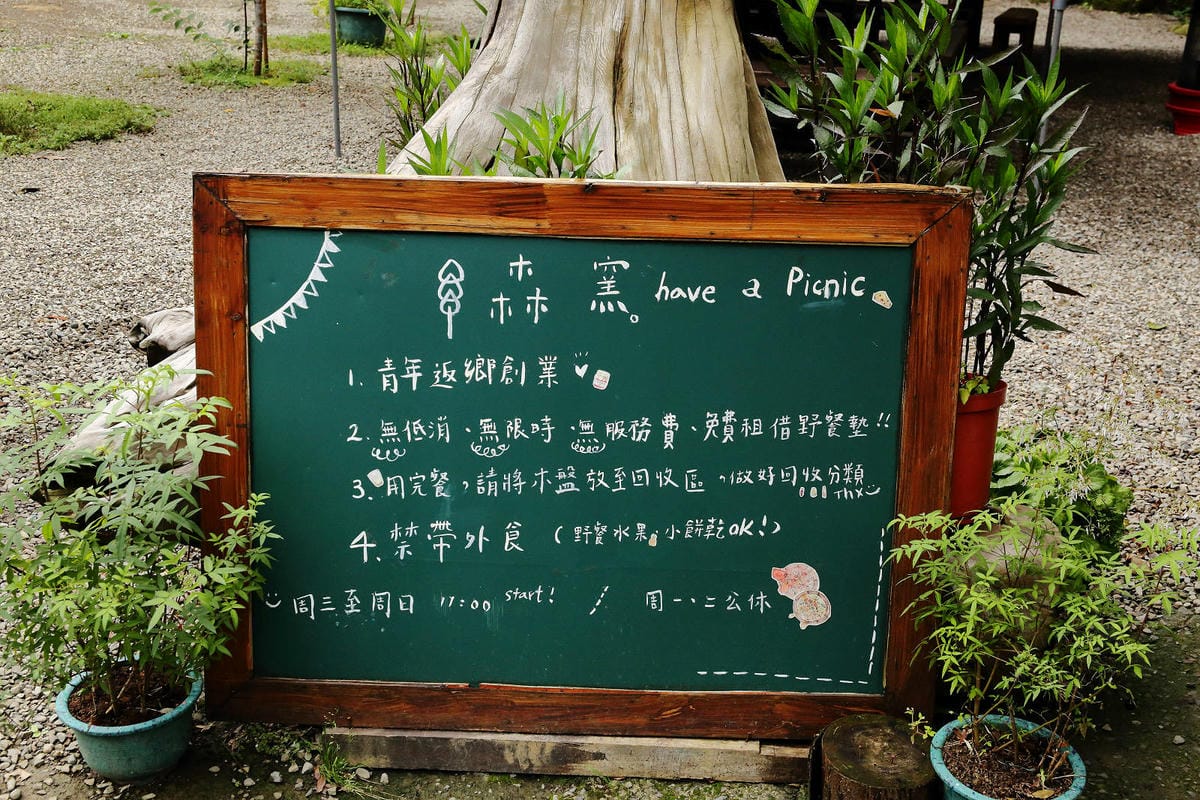 森 窯。have a Picnic
1. 青年返鄉創業
2. 無低消、無限時、無服務費、免費租借野餐墊!!
3. 用完餐，請將木盤放至回收區，做好回收分類 Thx
4. 禁帶外食 (野餐水果、小餅乾OK!)
周三至周日 11:00 start! / 周一、二公休